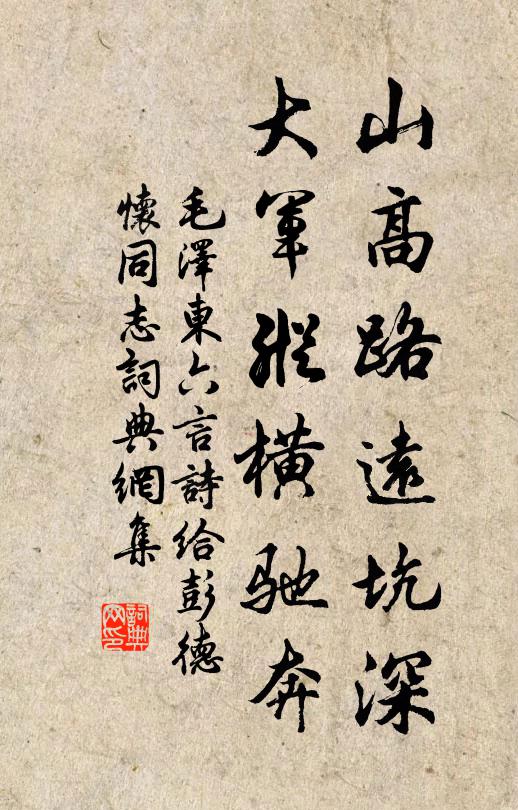 山高路遠坑深
大軍縱橫驰奔
毛澤東六言詩給彭德
懷同志詞典網集
詞典网印